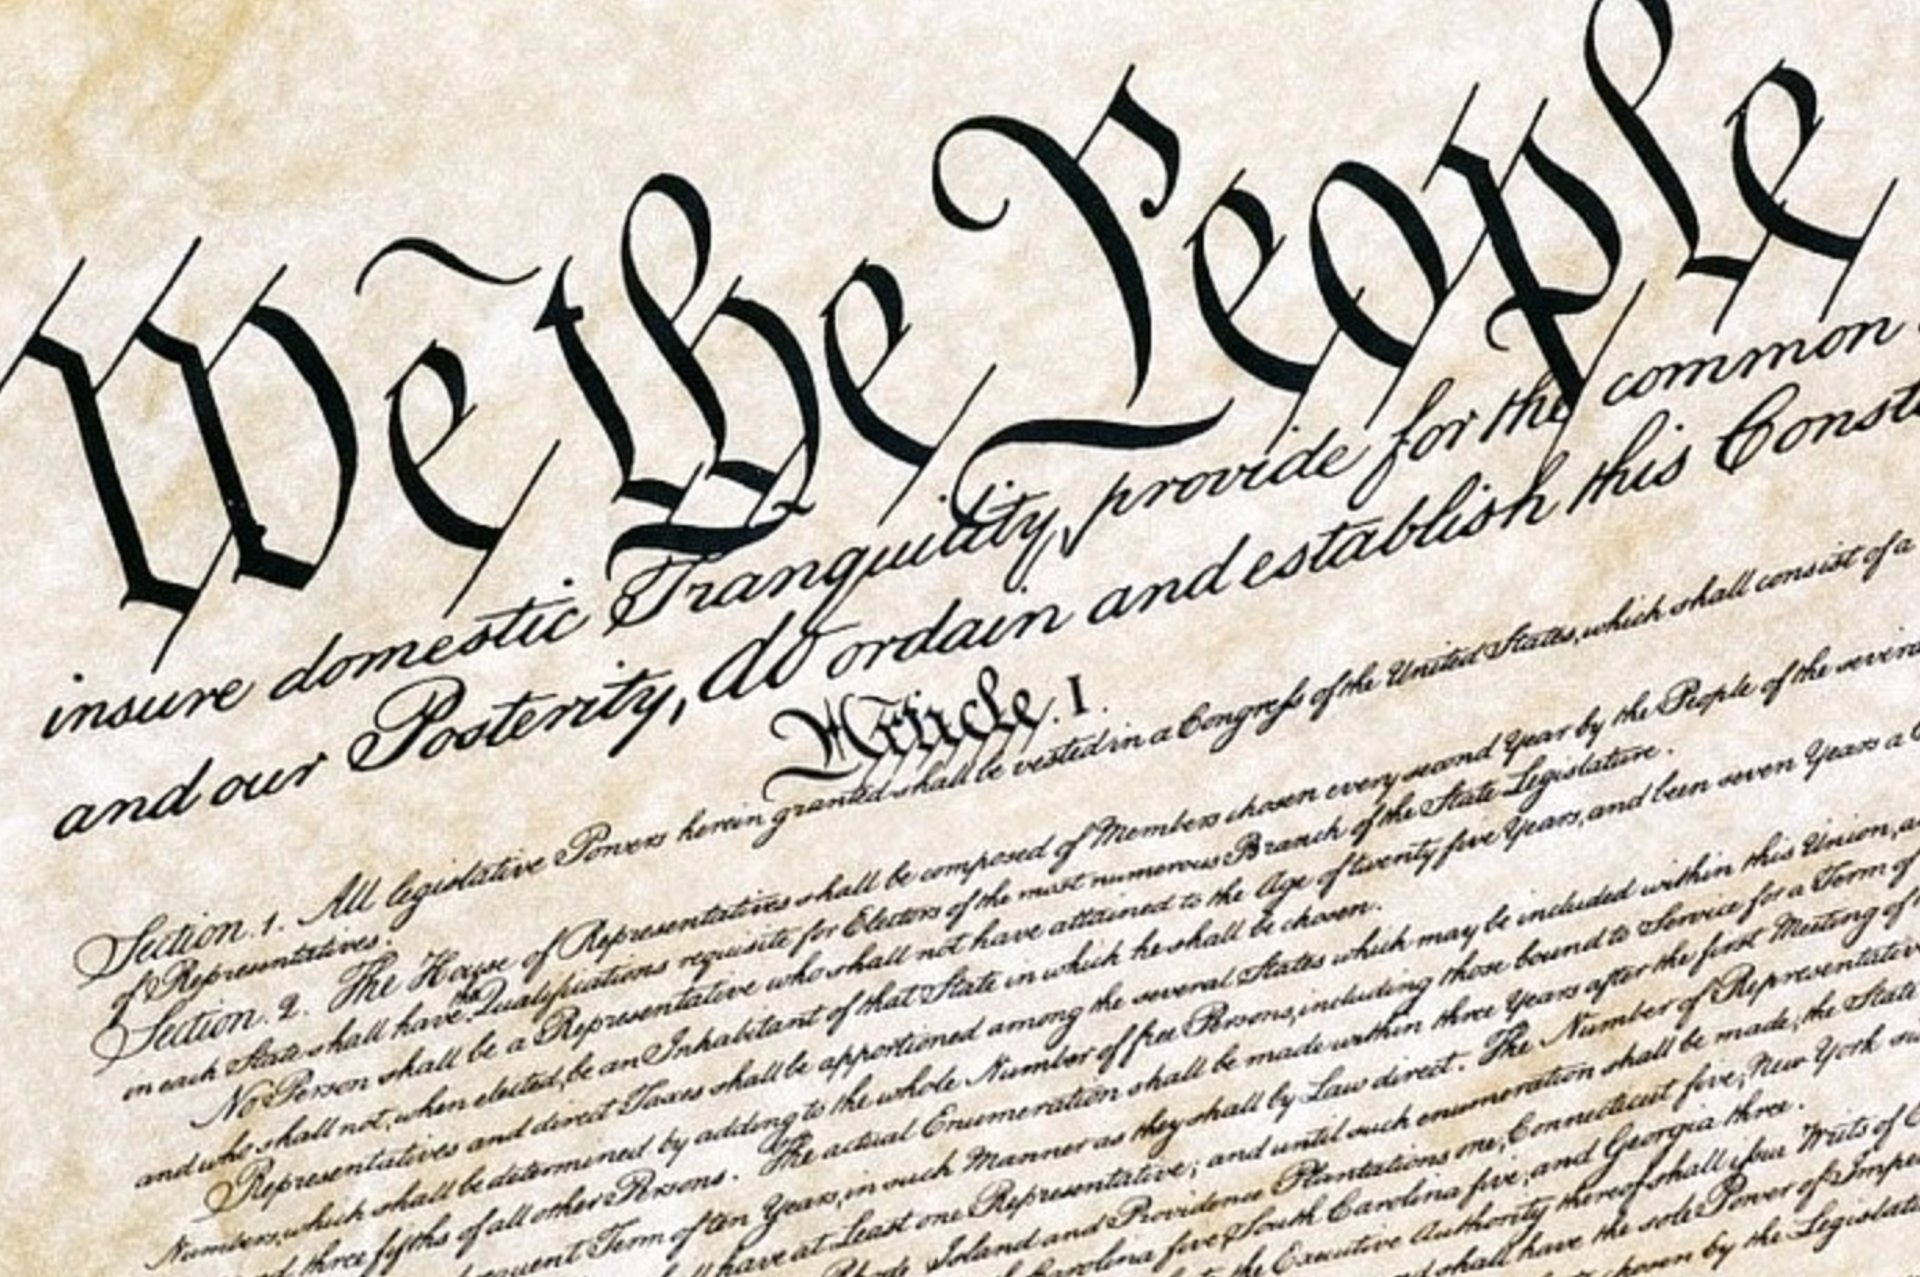 We the People
insure domestic Tranquility, provide for the common
and our Posterity, do ordain and establish this Const
Article. I.
Section. 1. All legislative Powers herein granted shall be vested in a Congress of the United States, which shall consist of a
of Representatives.
Section. 2. The House of Representatives shall be composed of Members chosen every second Year by the People of the severa
in each State shall have the Qualifications requisite for Electors of the most numerous Branch of the State Legislature.
No Person shall be a Representative who shall not have attained to the Age of twenty five Years, and been seven Years a
and who shall not, when elected, be an Inhabitant of that State in which he shall be chosen.
Representatives and direct Taxes shall be apportioned among the several States which may be included within this Union,
Numbers, which shall be determined by adding to the whole Number of free Persons, including those bound to Service for a Term of
three fifths of all other Persons. The actual Enumeration shall be made within three Years after the first Meeting of
equent Term of ten Years, in such Manner as they shall by Law direct. The Number of Representatives
have at Least one Representative; and until such enumeration shall be made, the State
Rhode Island and Providence Plantations one, Connecticut five, New York
Carolina five, South Carolina five, and Georgia three.
the Executive Authority thereof shall issue Writs of
shall have the sole Power of Impe
chosen by the Legislatu